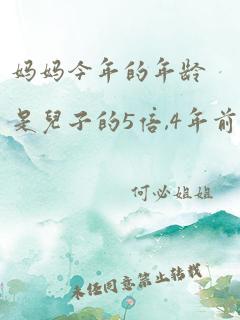 妈妈今年的年龄
是兒子的5倍,4年前
何必姐姐
未经同意禁止转载